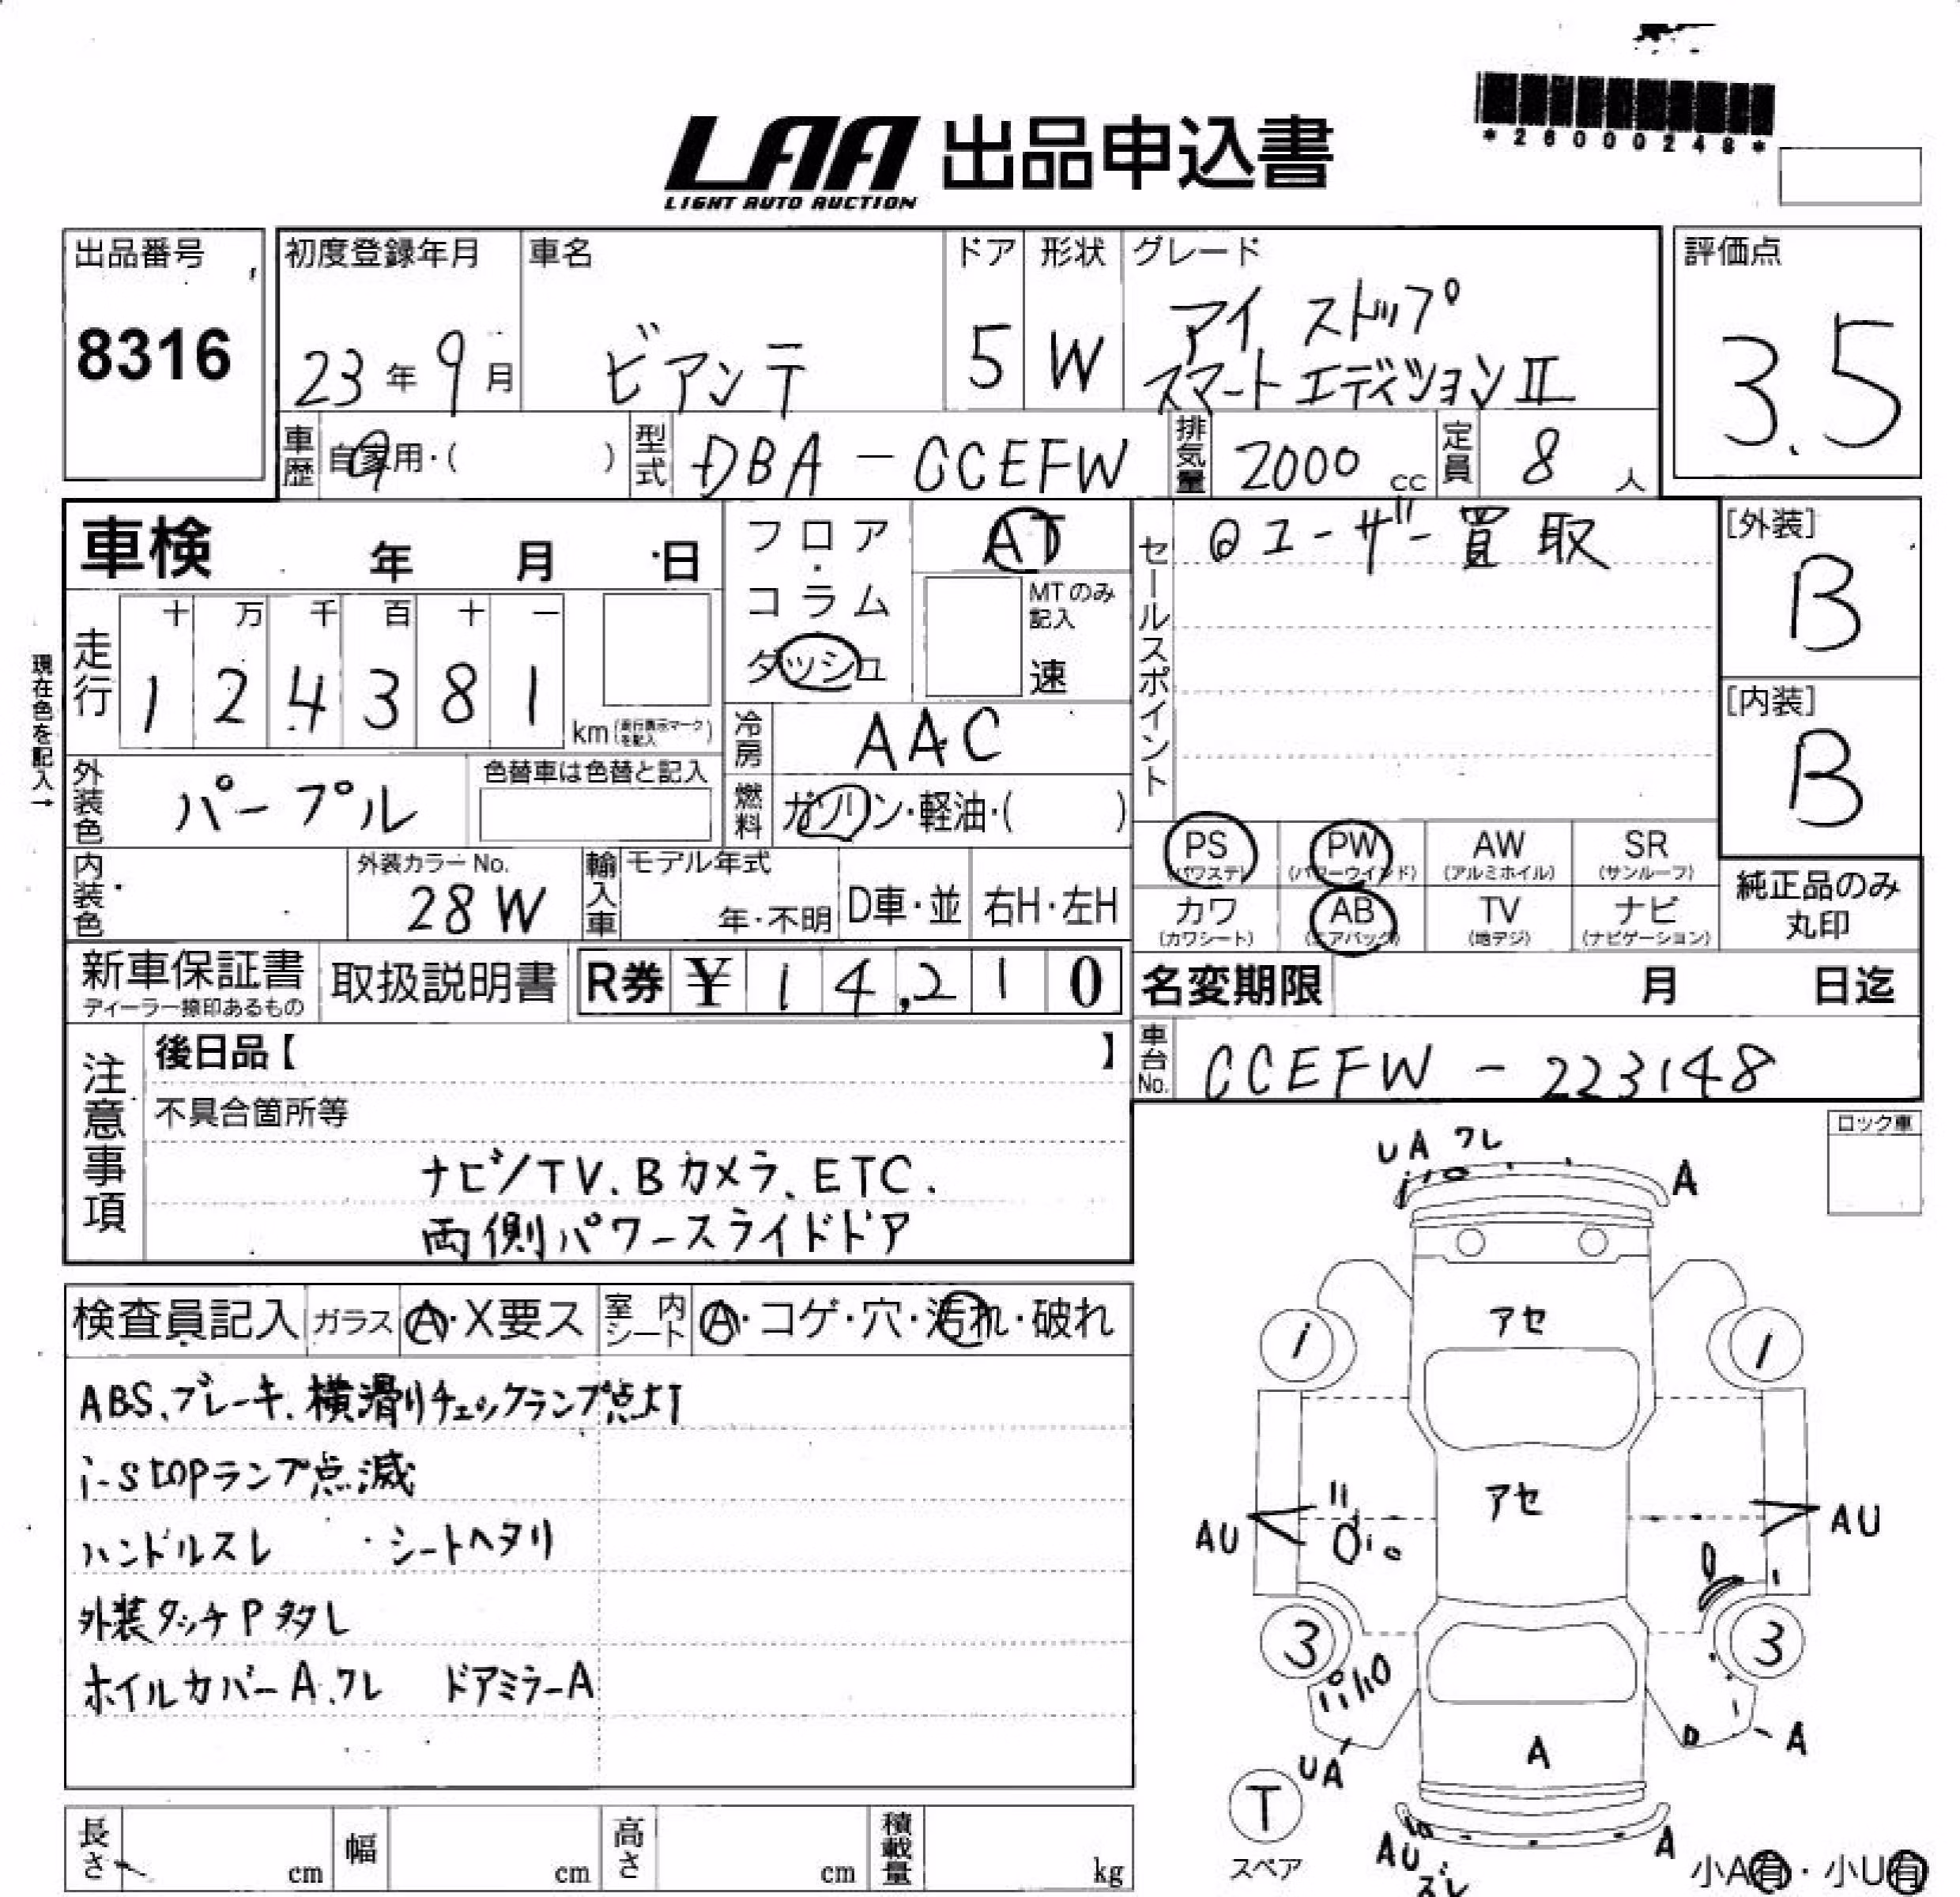 LAA 出品申込書
LIGHT AUTO AUCTION
*26000248*
出品番号
8316
初度登録年月
23年9月
車名
ビアンテ
ドア
5
形状
W
グレード
アイ ストップ
スマートエディションⅡ
評価点
3.5
車歴
自家用・( )
型式
DBA-CCEFW
排気量
2000 cc
定員
8 人
車検 年 月 日
フロア・コラム
ダッシュ
AT
MTのみ記入
速
セールスポイント
◎ユーザー買取
[外装]
B
[内装]
B
現在色を記入→
走行
十 万 千 百 十 一
1 2 4 3 8 1
km (走行表示マークを記入)
冷房
AAC
外装色
パープル
色替車は色替と記入
燃料
ガソリン・軽油・( )
PS (パワステ)
PW (パワーウインド)
AW (アルミホイル)
SR (サンルーフ)
カワ (カワシート)
AB (エアバック)
TV (地デジ)
ナビ (ナビゲーション)
純正品のみ丸印
内装色
外装カラーNo.
28W
輸入車
モデル年式
年・不明
D車・並
右H・左H
新車保証書
ディーラー捺印あるもの
取扱説明書
R券 ¥ 14,210
名変期限 月 日迄
車台No.
CCEFW-223148
注意事項
後日品【 】
不具合箇所等
ナビ/TV.Bカメラ、ETC.
両側パワースライドドア
ロック車
検査員記入
ガラス
A・X要ス
室内シート
A・コゲ・穴・汚れ・破れ
ABS、ブレーキ、横滑りチェックランプ点灯
i-stopランプ点滅
ハンドルスレ ・シートヘタリ
外装タッチP多々レ
ホイルカバーA.ワレ ドアミラーA
UA ワレ
A
アセ
1
1
アセ
AU
AU
3
3
A
UA
A
T
スペア
AU
スレ
A
小A有・小U有
長さ cm
幅 cm
高さ cm
積載量 kg